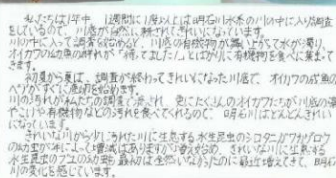 私たちは1年中 1週間に1度以上は明石川水系の川の中に入り調査
をしているので、川底が自然に耕されてきれいになっています。
川の中に入って調査を始めると、川底の有機物が舞い上がって水が濁り、
オイカワの幼魚の群れが「待ってました!」とばかりに有機物を食べに集まって
きます。
初夏から夏は、調査が終わってきれいになった川底で、オイカワの成魚の
ペアがすぐに産卵を始めます。
川の汚れが私たちの調査で流され、更にたくさんのオイカワたちが川底の藻
やこいや有機物などの汚れを食べてくれるので、明石川はどんどんきれい
になっています。
きれいな川から少し汚れた川に生息する水生昆虫のシロタニガワカゲロウ
の幼虫が年によって増減はありますが増え始め、きれいな川に生息する
水生昆虫のブユの幼虫も最初は全然いなかったのに最近増えてきて、明石
川の変化を感じています。